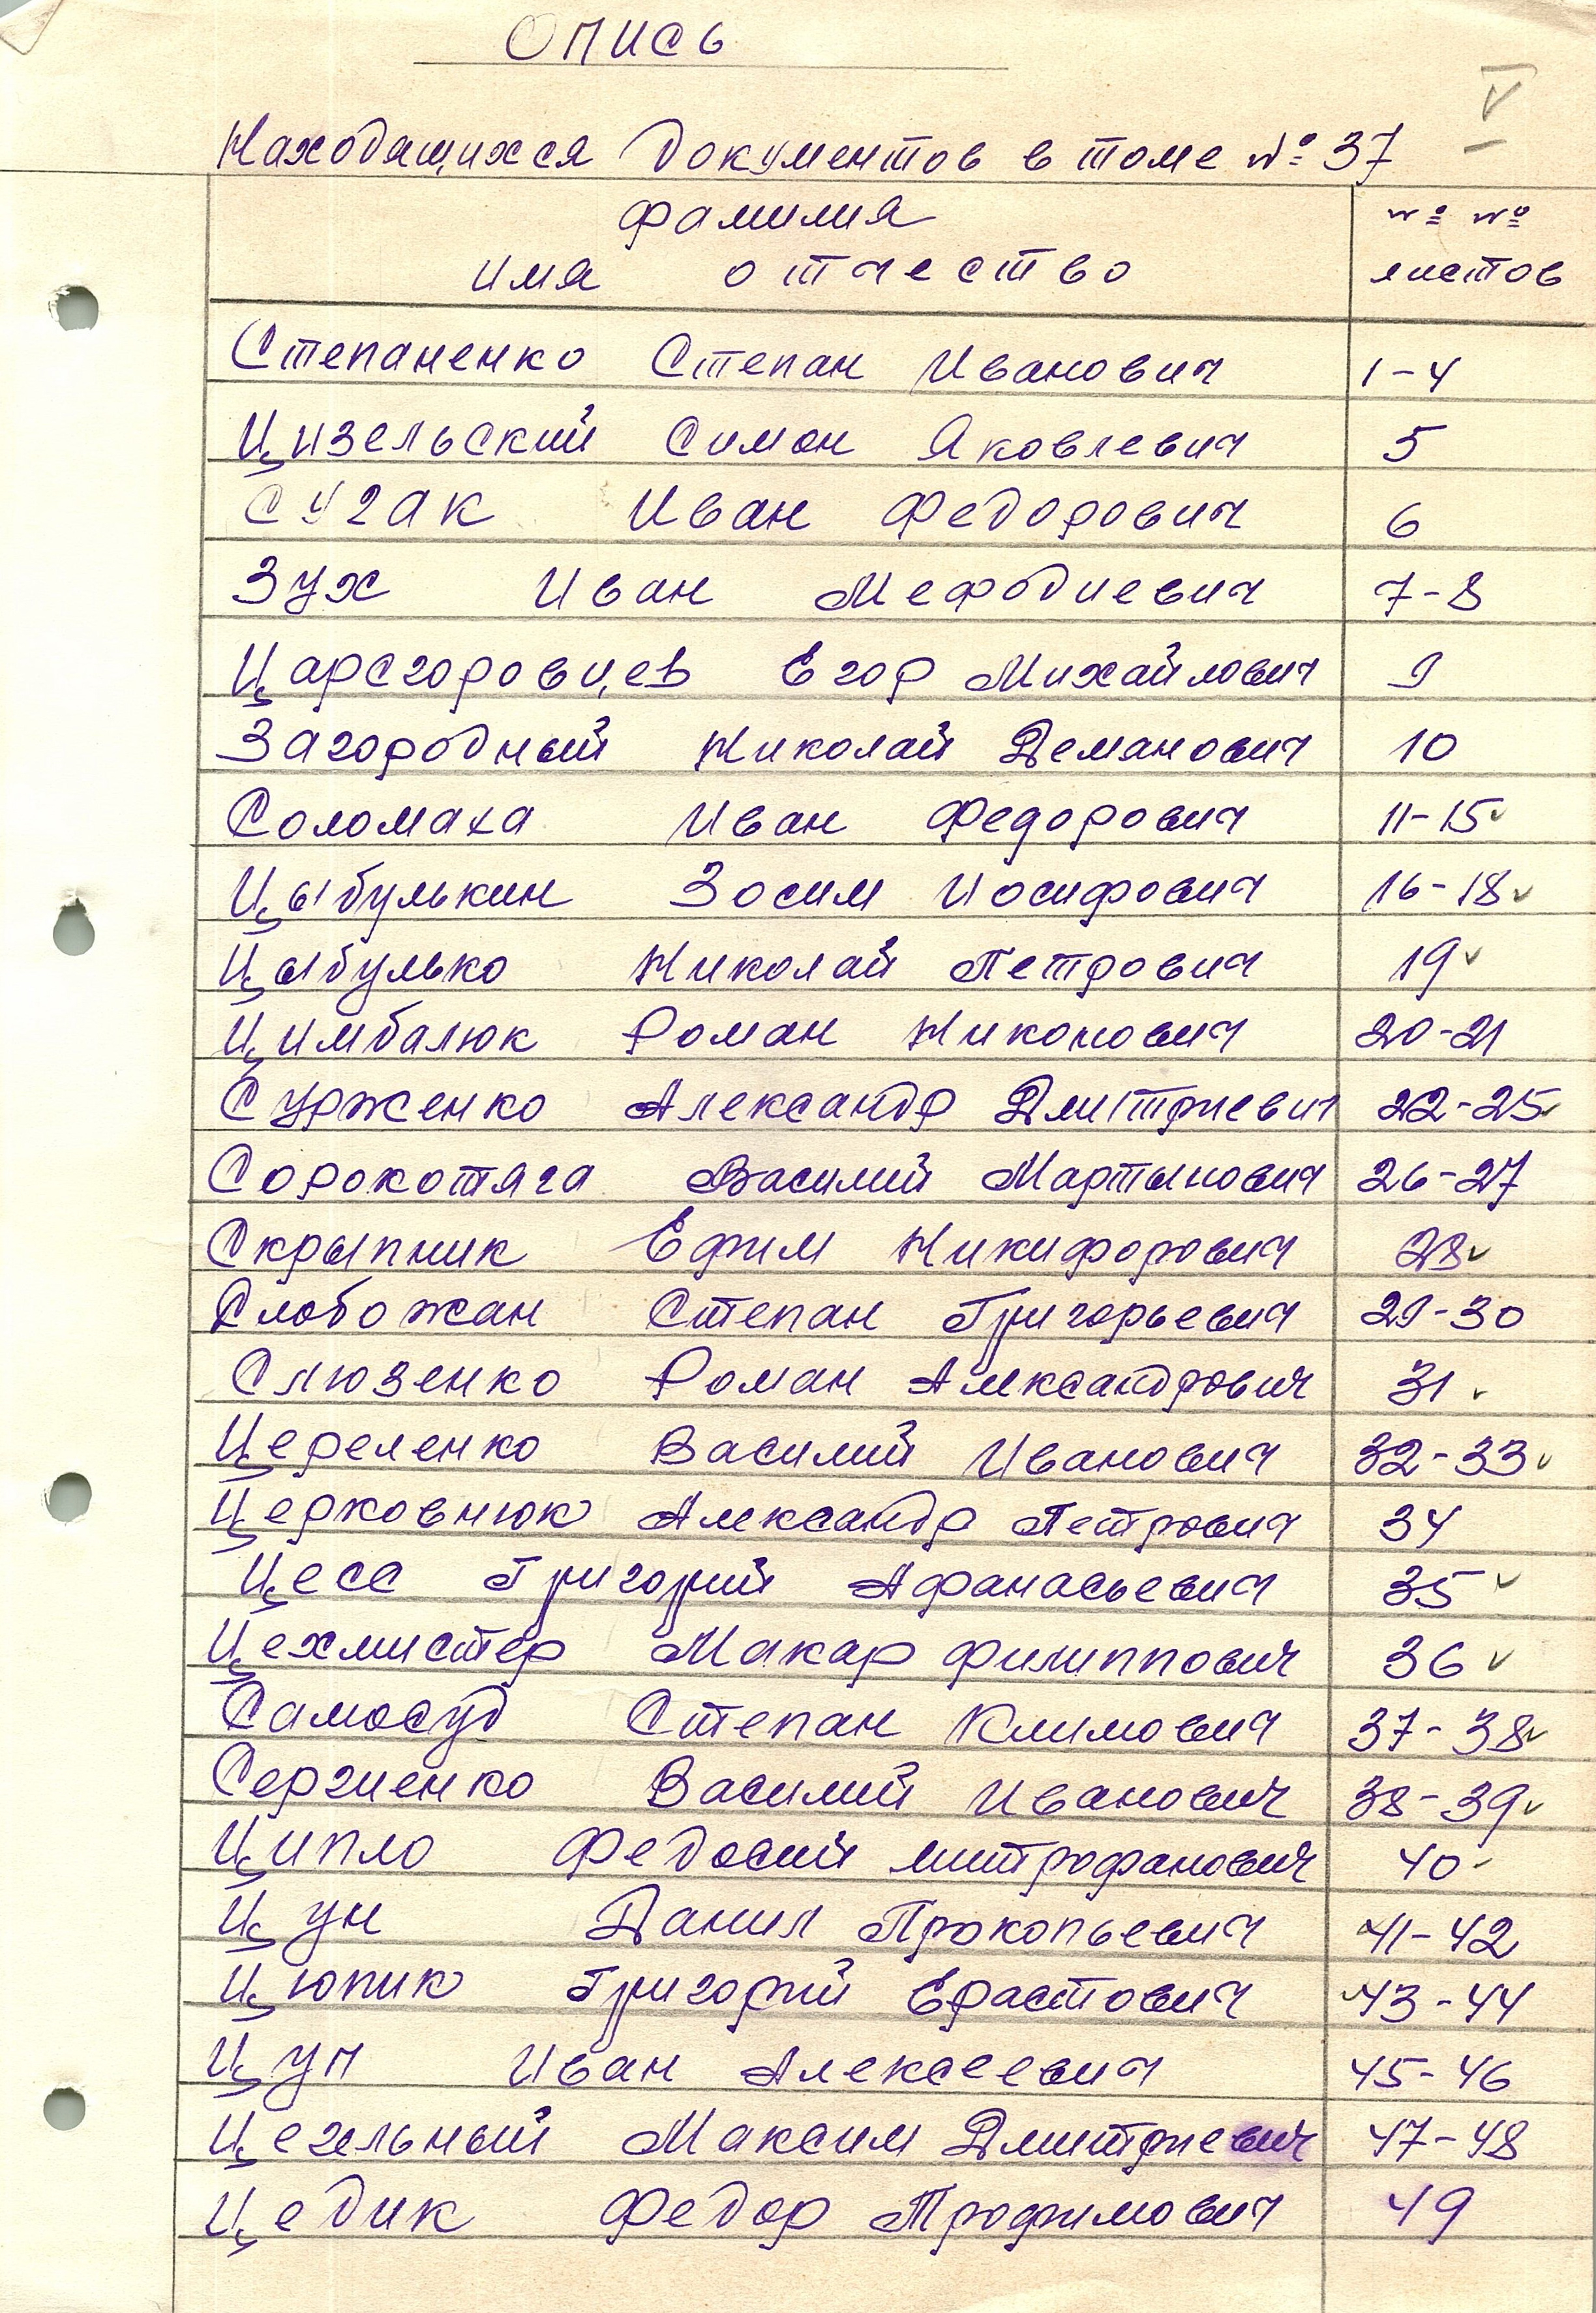 Опись
V
Находящихся документов в томе № 37
фамилия №№
имя отчество листов
Степаненко Степан Иванович 1-4
Цизельский Симон Яковлевич 5
Сугак Иван Федорович 6
Зух Иван Мефодиевич 7-8
Царегоровцев Егор Михайлович 9
Загородный Николай Демянович 10
Соломаха Иван Федорович 11-15 ✓
Цыбулькин Зосим Иосифович 16-18 ✓
Цыбулько Николай Петрович 19 ✓
Цимбалюк Роман Никонович 20-21
Сурженко Александр Дмитриевич 22-25 ✓
Сорокотяга Василий Мартынович 26-27
Скрыпник Ефим Никифорович 28 ✓
Слобожан Степан Григорьевич 29-30
Слюзенко Роман Александрович 31 ✓
Цереленко Василий Иванович 32-33 ✓
Церковнюк Александр Петрович 34
Цесс Григорий Афанасьевич 35 ✓
Цехмистер Макар Филиппович 36 ✓
Самосуд Степан Климович 37-38 ✓
Сергиенко Василий Иванович 38-39 ✓
Ципло Федосий митрофанович 40 ✓
Цун Данил Прокопьевич 41-42
Цюпик Григорий Ерастович 43-44
Цуп Иван Алексеевич 45-46
Цегельный Максим Дмитриевич 47-48
Цедик Федор Трофимович 49